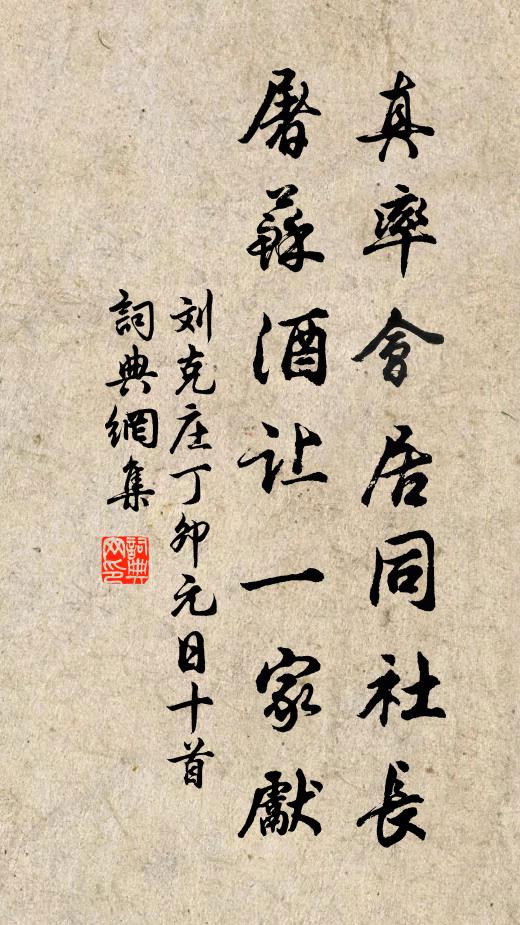 真率會居同社長
屠蘇酒让一家獻
刘克庄丁卯元日十首
詞典網集
詞典网印